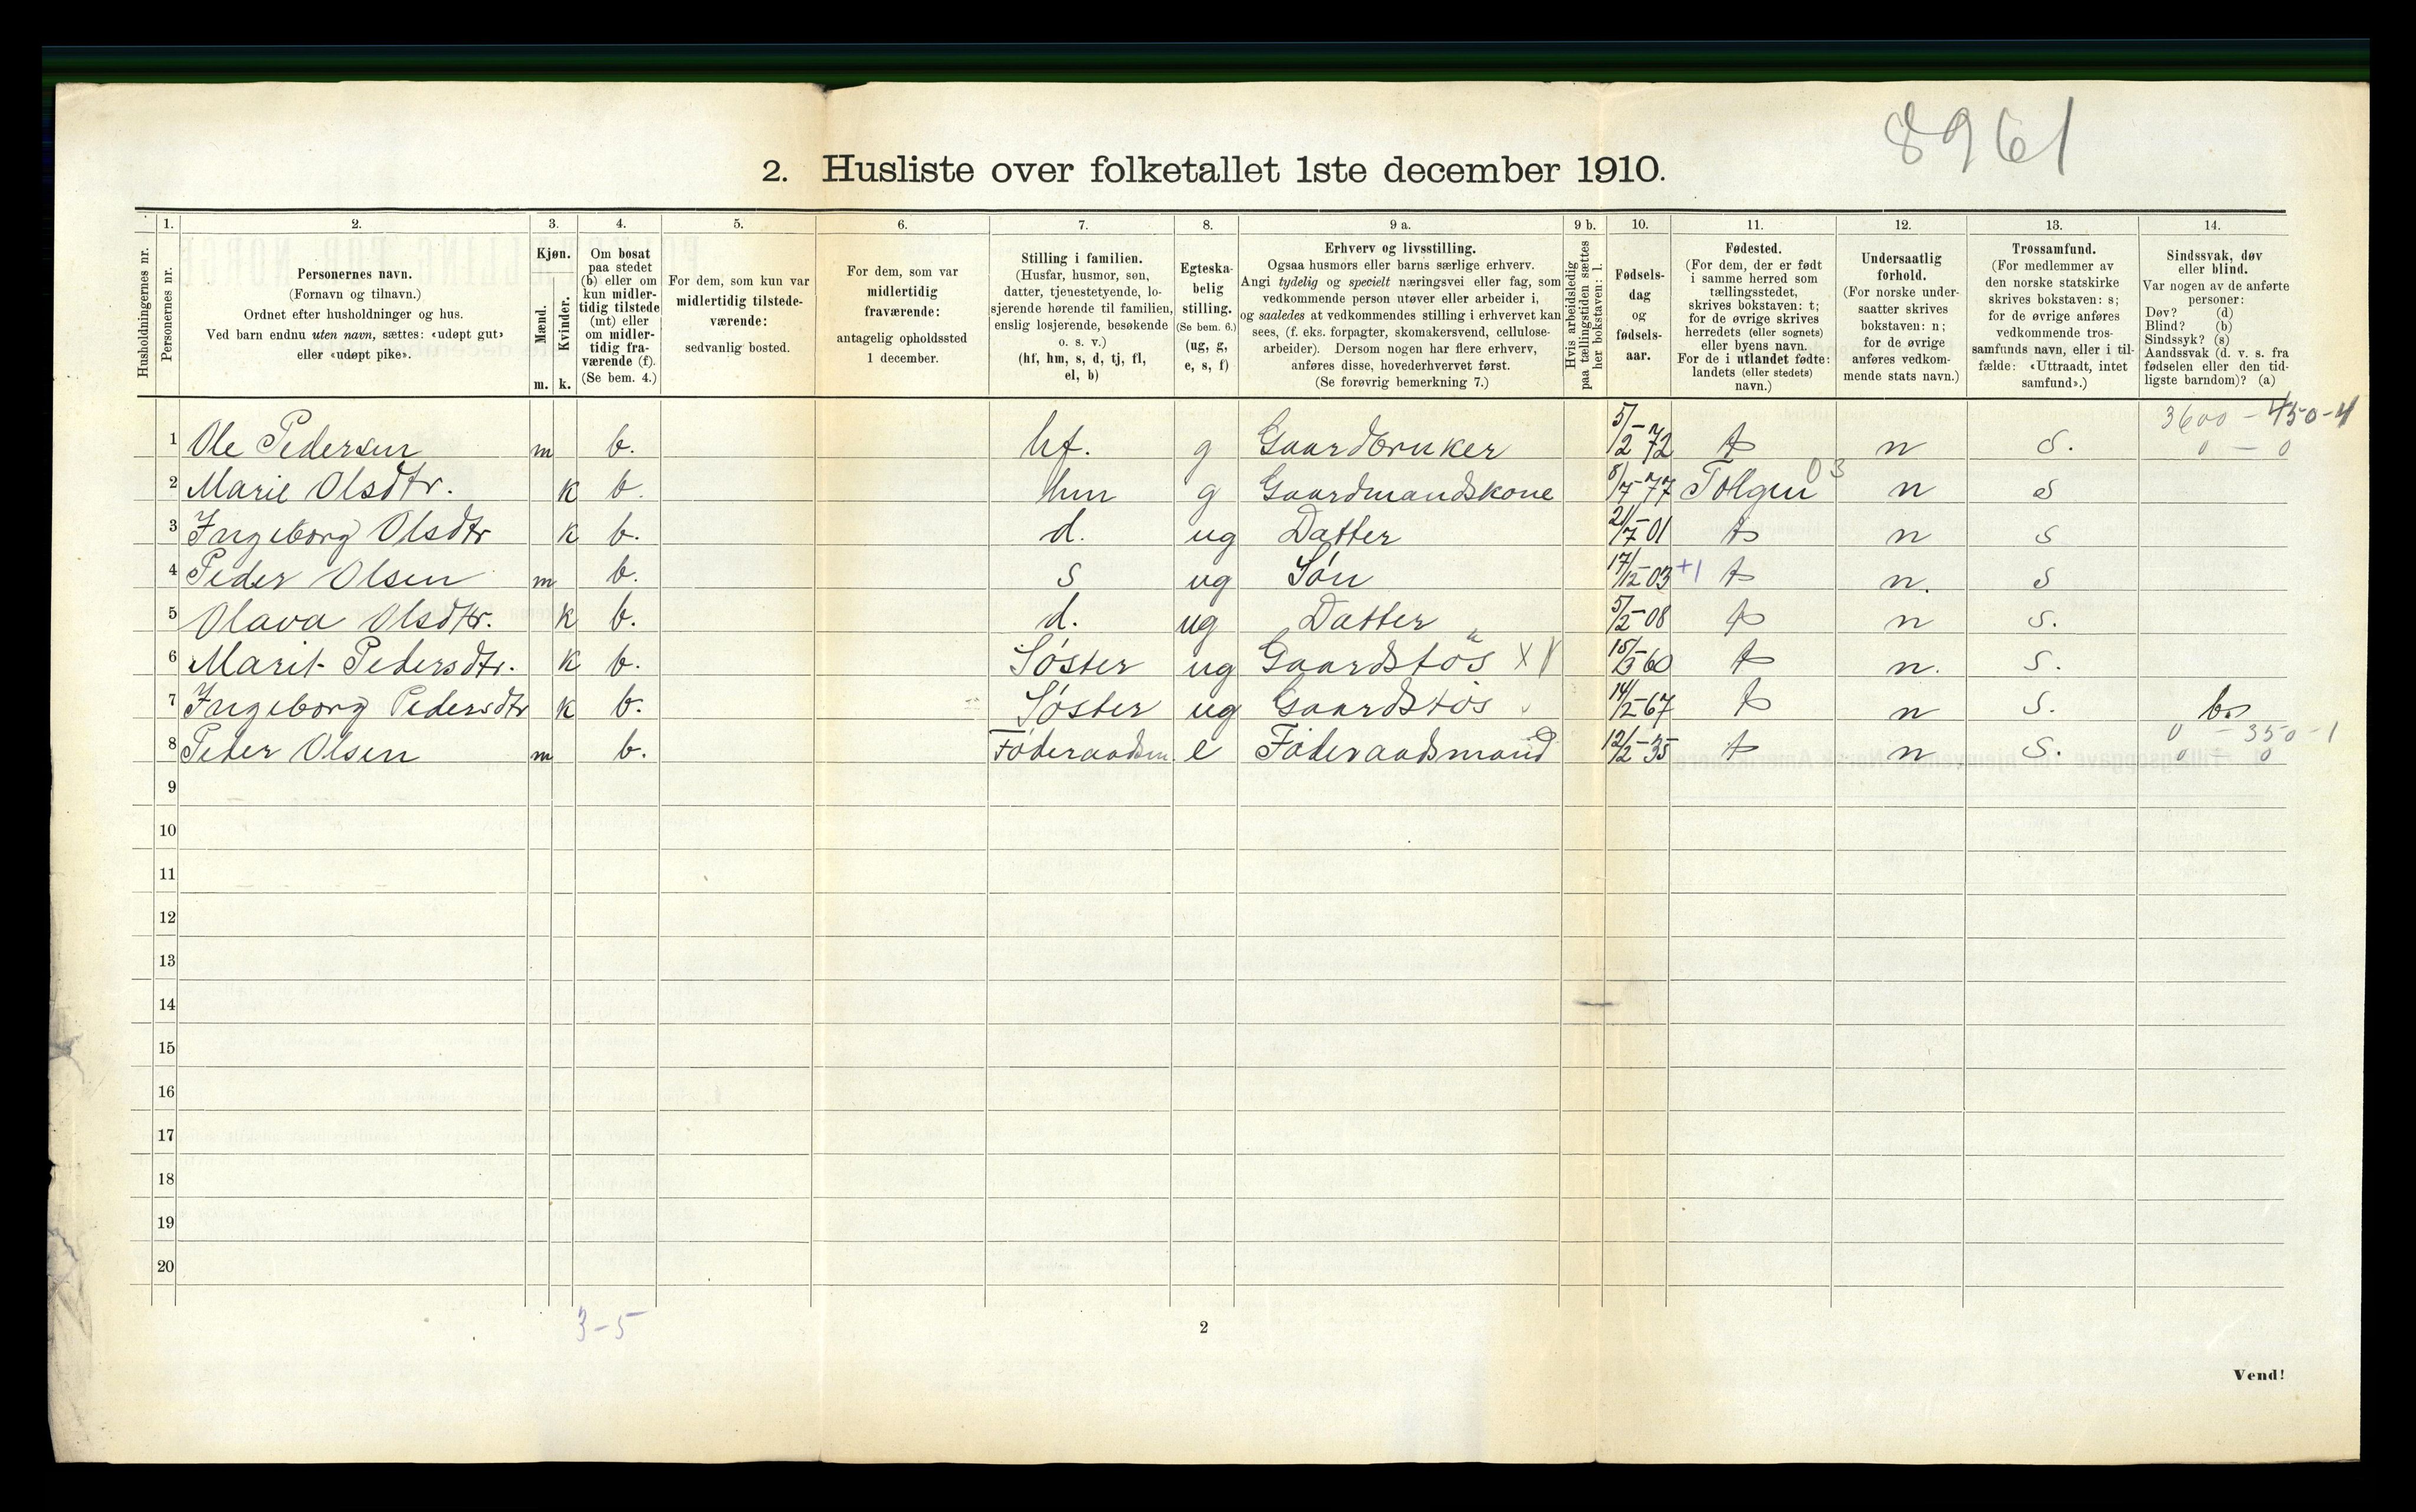 8961
2. Husliste over folketallet 1ste december 1910.
Husholdningernes nr.
1.
Personernes nr.
2.
Personernes navn.
(Fornavn og tilnavn.)
Ordnet efter husholdninger og hus.
Ved barn endnu uten navn, sættes: «udøpt gut»
eller «udøpt pike».
3.
Kjøn.
Mænd.
m.
Kvinder.
k.
4.
Om bosat
paa stedet
(b) eller om
kun midler-
tidig tilstede
(mt) eller
om midler-
tidig fra-
værende (f).
(Se bem. 4.)
5.
For dem, som kun var
midlertidig tilstede-
værende:
sedvanlig bosted.
6.
For dem, som var
midlertidig
fraværende:
antagelig opholdssted
1 december.
7.
Stilling i familien.
(Husfar, husmor, søn,
datter, tjenestetyende, lo-
sjerende hørende til familien,
enslig losjerende, besøkende
o. s. v.)
(hf, hm, s, d, tj, fl,
el, b)
8.
Egteska-
belig
stilling.
(Se bem. 6.)
(ug, g,
e, s, f)
9 a.
Erhverv og livsstilling.
Ogsaa husmors eller barns særlige erhverv.
Angi tydelig og specielt næringsvei eller fag, som
vedkommende person utøver eller arbeider i,
og saaledes at vedkommendes stilling i erhvervet kan
sees, (f. eks. forpagter, skomakersvend, cellulose-
arbeider). Dersom nogen har flere erhverv,
anføres disse, hovederhvervet først.
(Se forøvrig bemerkning 7.)
9 b.
Hvis arbeidsledig
paa tællingstiden sættes
her bokstaven: l.
10.
Fødsels-
dag
og
fødsels-
aar.
11.
Fødested.
(For dem, der er født
i samme herred som
tællingsstedet,
skrives bokstaven: t;
for de øvrige skrives
herredets (eller sognets)
eller byens navn.
For de i utlandet fødte:
landets (eller stedets)
navn.)
12.
Undersaatlig
forhold.
(For norske under-
saatter skrives
bokstaven: n;
for de øvrige
anføres vedkom-
mende stats navn.)
13.
Trossamfund.
(For medlemmer av
den norske statskirke
skrives bokstaven: s;
for de øvrige anføres
vedkommende tros-
samfunds navn, eller i til-
fælde: «Uttraadt, intet
samfund».)
14.
Sindssvak, døv
eller blind.
Var nogen av de anførte
personer:
Døv? (d)
Blind? (b)
Sindssyk? (s)
Aandssvak (d. v. s. fra
fødselen eller den tid-
ligste barndom)? (a)
3600 - 450-4
1 Ole Pedersen m b. hf. g Gaardbruker 5/2-72 t n s. 0 - 0
2 Marie Olsdtr. k b. hm g Gaardmandskone 8/7-77 Tolgen 03 n s
3 Ingeborg Olsdtr k b. d. ug Datter 21/7-01 t n s
4 Peder Olsen m b. s ug Søn 17/12-03 +1 t n. s
5 Olava Olsdtr. k b. d. ug Datter 5/2-08 t n s.
6 Marit Pedersdtr. k b. Søster ug Gaardstøs X 15/3-60 t n. s.
7 Ingeborg Pedersdtr k b. Søster ug Gaardstøs 14/2-67 t n s. b.
0 - 350-1
8 Peder Olsen m b. Føderaadsm. e Føderaadsmand 12/2-35 t n s. 0 - 0
9
10
11
12
13
14
15
16
17
18
19
20
3-5
2
Vend!